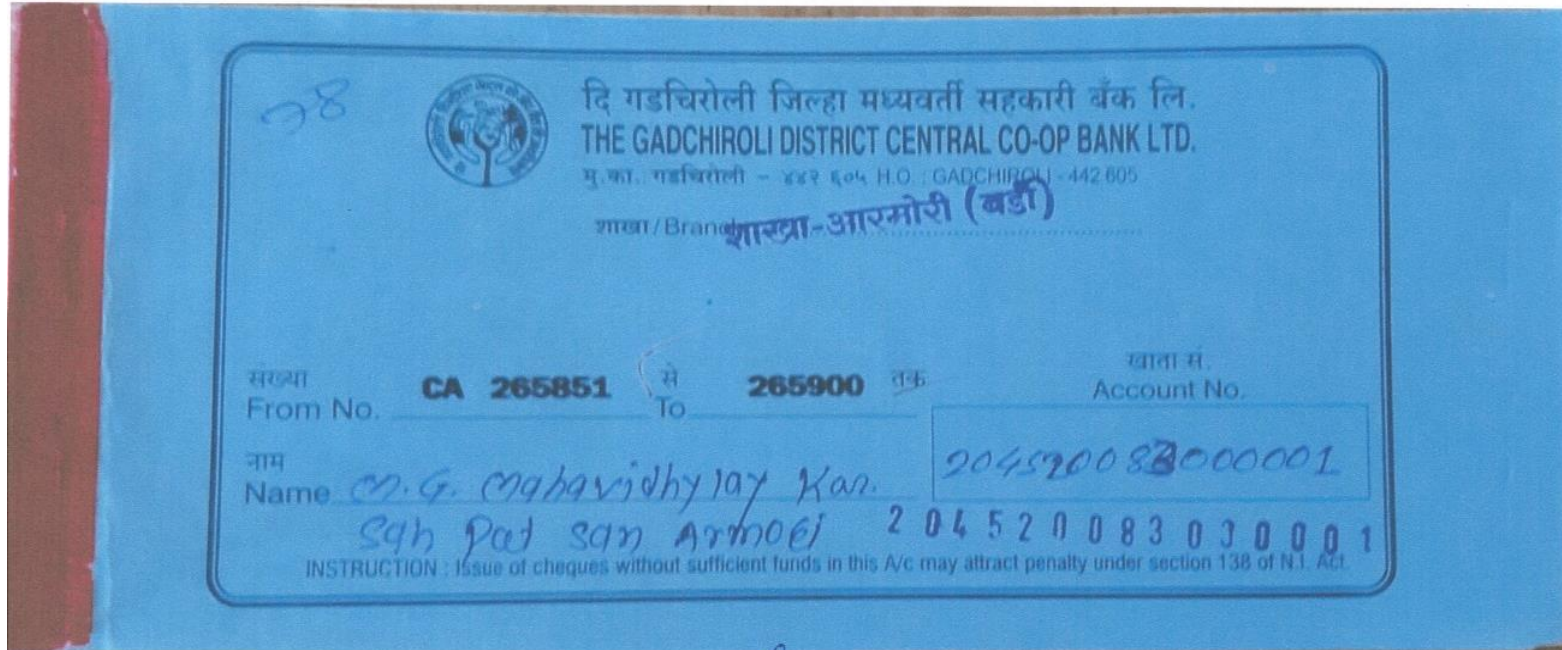 28
दि गडचिरोली जिल्हा मध्यवर्ती सहकारी बँक लि.
THE GADCHIROLI DISTRICT CENTRAL CO-OP BANK LTD.
मु.का. गडचिरोली - ४४२ ६०५ H.O. : GADCHIROLI - 442 605
शाखा / Branch शाखा-आरमोरी (बर्डी)
संख्या From No. CA 265851 से To 265900 तक
खाता सं. Account No.
204520083000001
नाम Name M.G. Mahavidhylay Kar.
Sah Pat San Armori
204520083000001
INSTRUCTION : Issue of cheques without sufficient funds in this A/c may attract penalty under section 138 of N.I. Act.